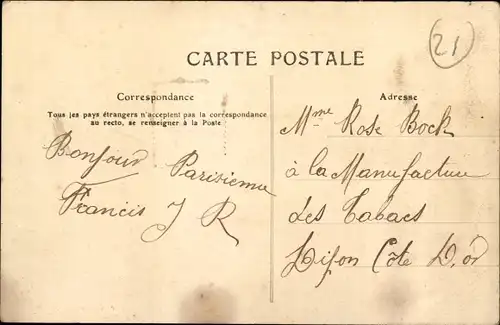 21
CARTE POSTALE
Correspondance
Tous les pays étrangers n'acceptent pas la correspondance
au recto, se renseigner à la Poste
Bonjour Parisienne
Francis J R
Adresse
Mme Rose Bock
à la Manufacture
des Tabacs
Dijon Côte D'or